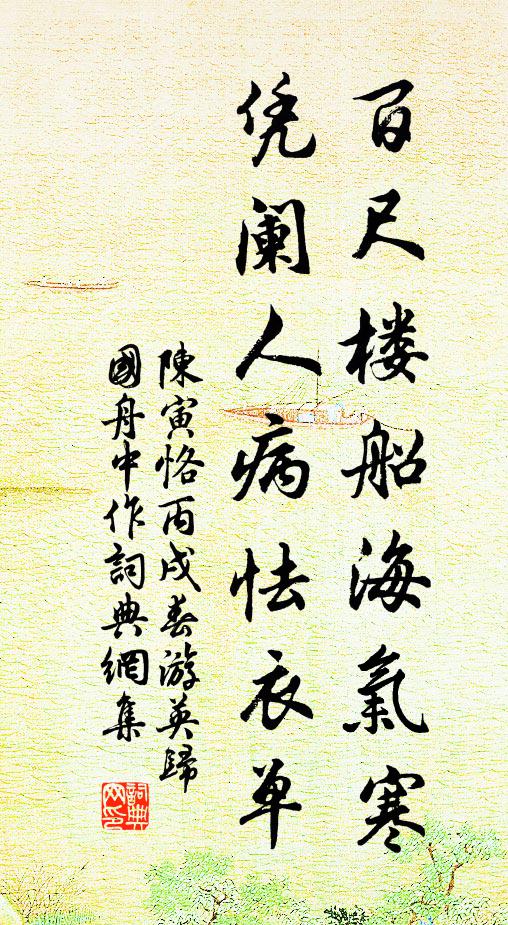 百尺楼船海氣寒
凭阑人病怯衣单
陳寅恪丙戌春游英歸
國舟中作詞典網集
詞典网印